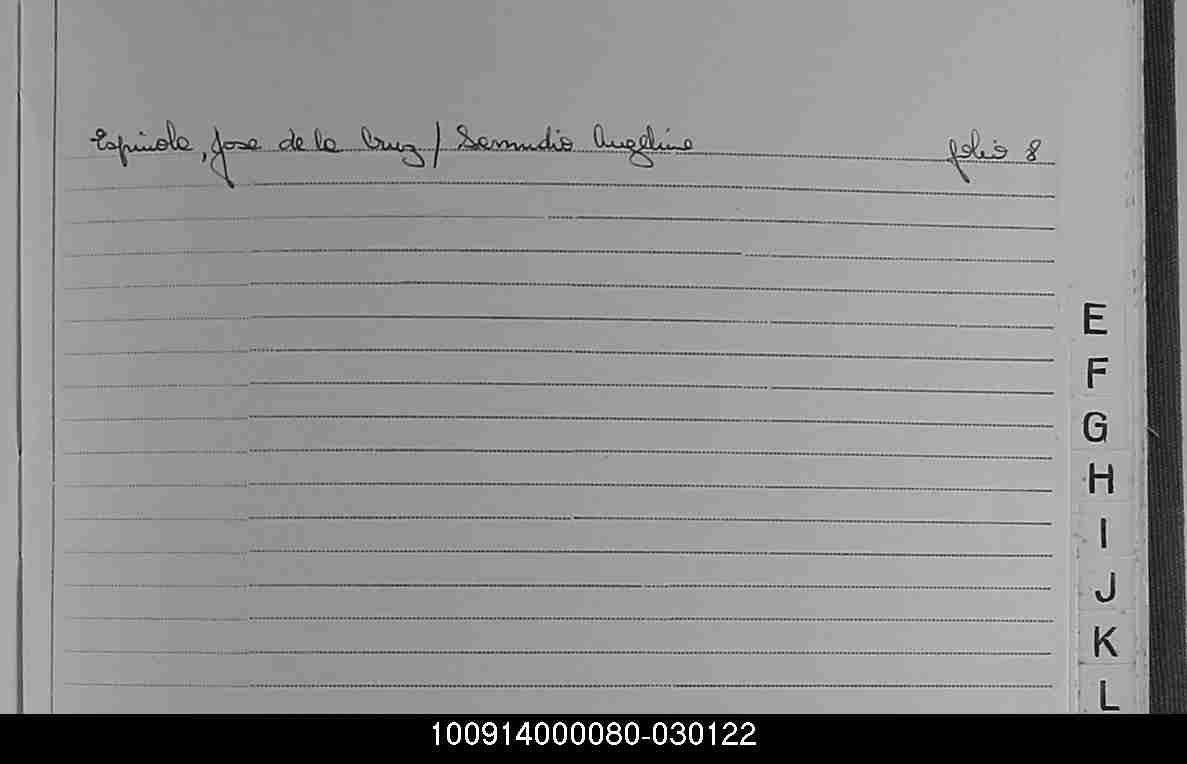 Espinola, Jose de la Cruz / Samudio Angelina folio 8
E
F
G
H
I
J
K
L
100914000080-030122